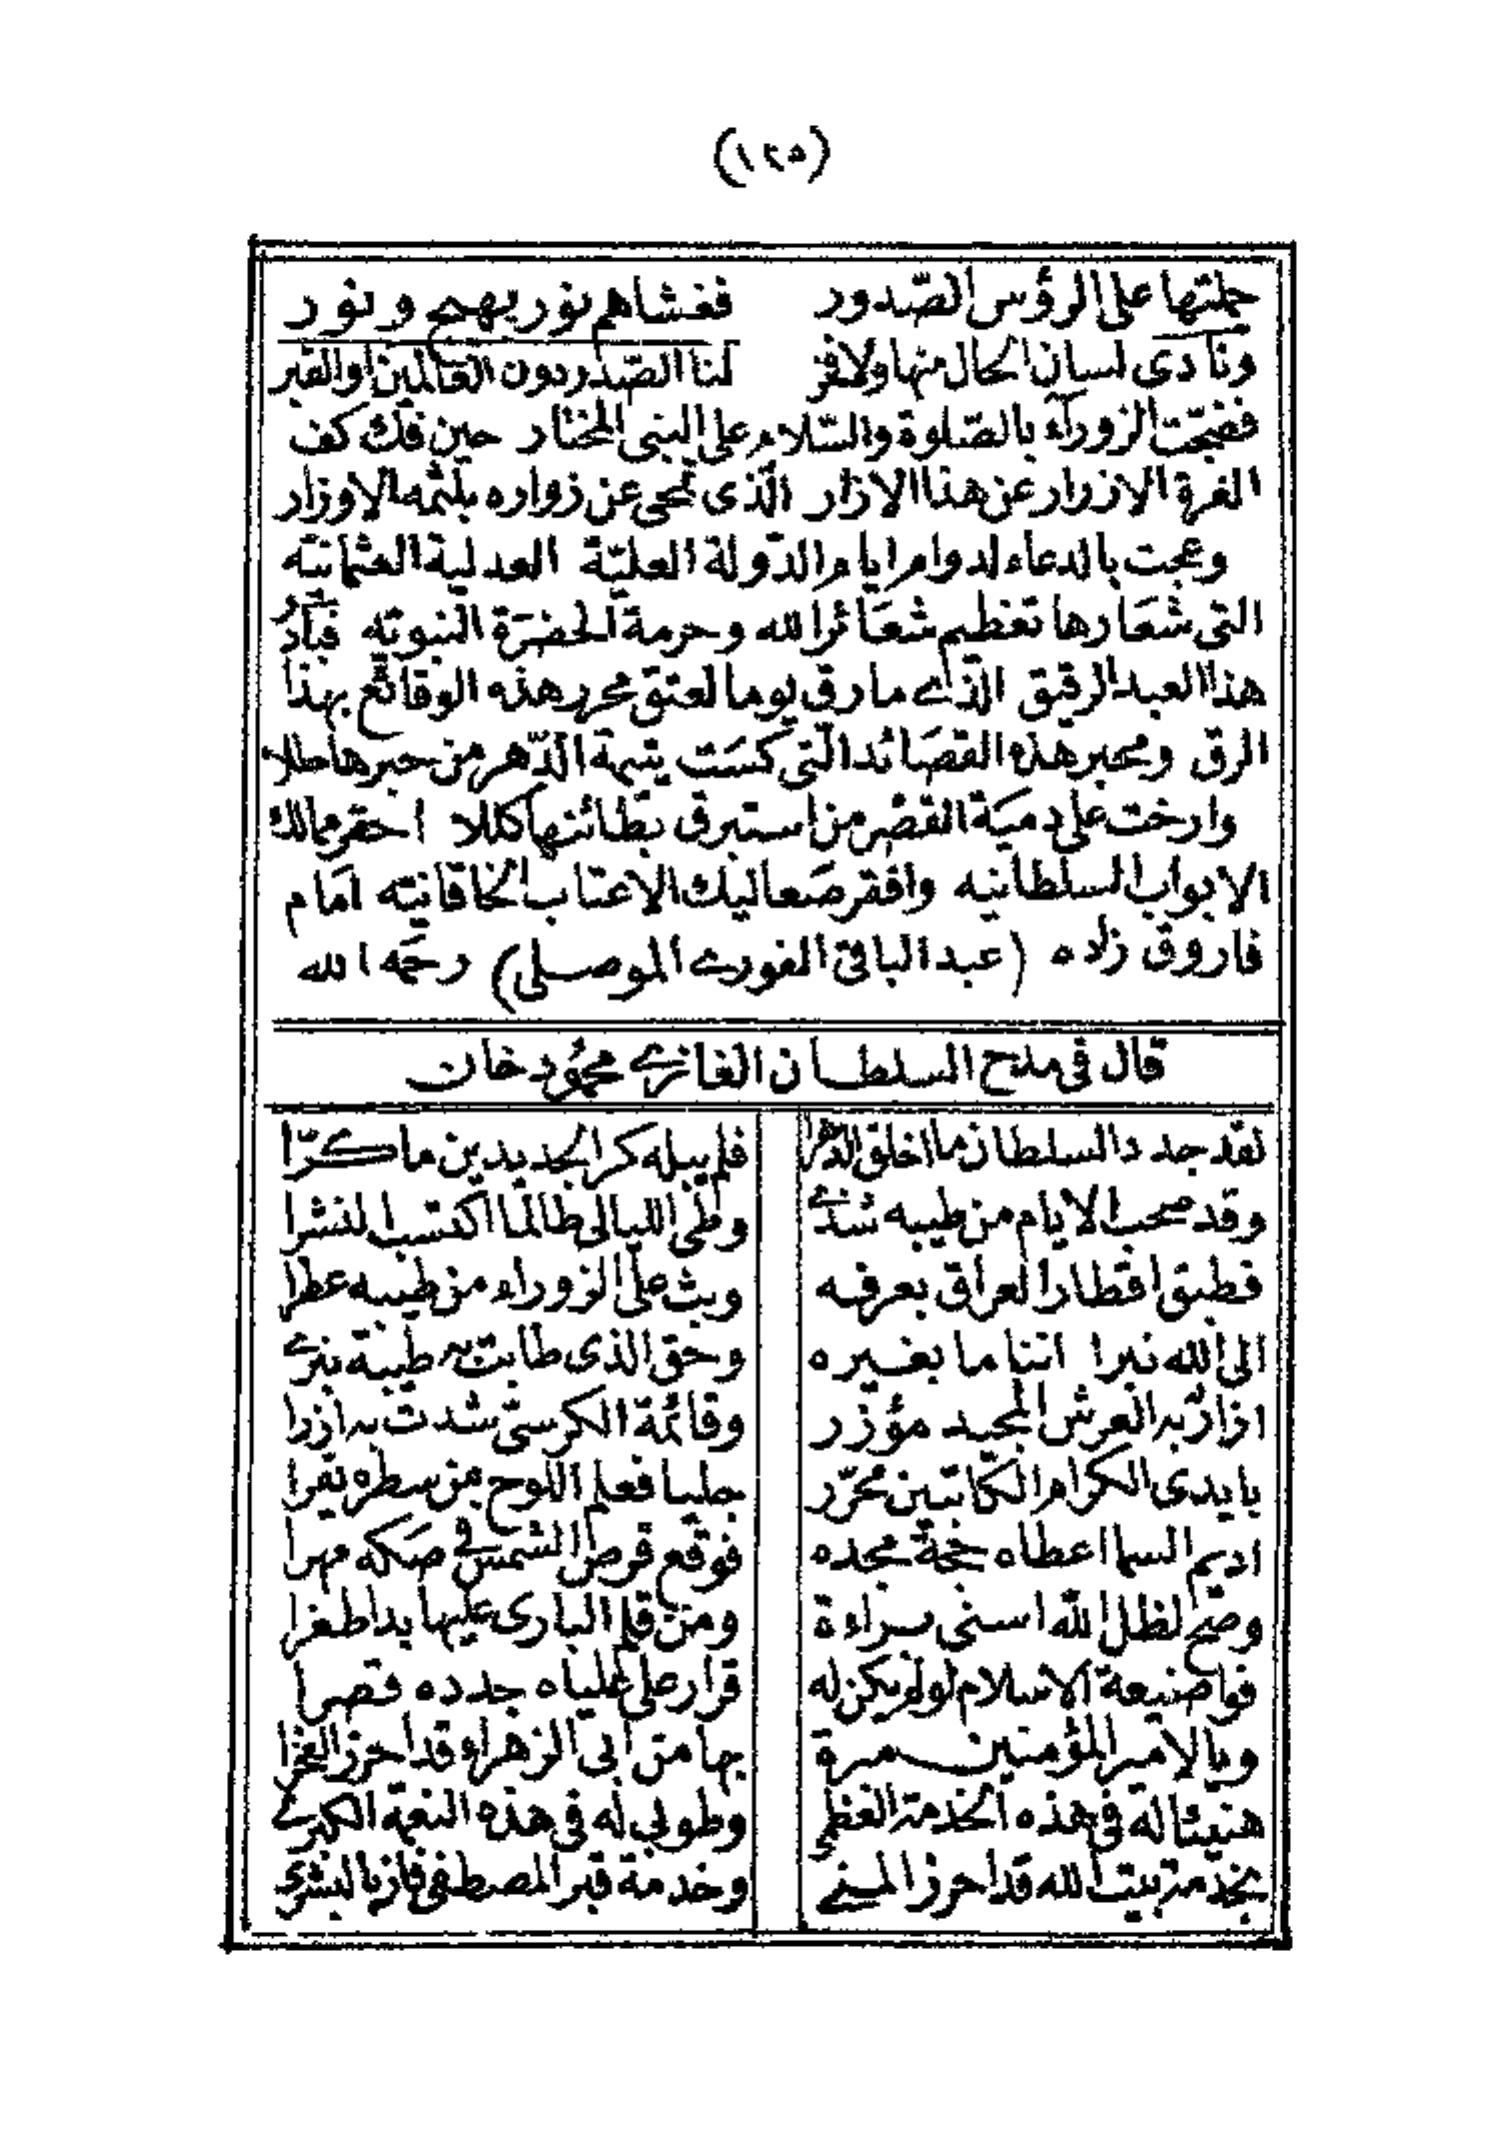 (١٢٥)
حملتها على الرؤس الصّدور فغشاهم نور بهيج ونور
ونادى لسان الحال منها ولا فخر لنا الصّدر دون العالمين او القبر
فضجّت الزورآء بالصّلوة والسّلام على النبى المختار حين فك كف
الغرة الازرار عن هذا الازار الّذى تمحى عن زواره بلثمه الاوزار
وعجت بالدعاء لدوام ايام الدّولة العليّة العدلية العثمانيّه
التى شعَارها تعظيم شعَائر الله وحرمة الحضرَة النبويّه
هذا العبد الرقيق الّذے مارق يوما لعتق محرر هذه الوقائع بهذا
الرق ومحبر هذه القصَائد الّتى كسَت يتيمة الدّهر من حبرها حللا
وارخت على دميَة القصْر من استبرق بَطائنها كللا احقر ممالك
الابواب السلطانيه وافقر صَعاليك الاعتاب الخاقانيّه امَام
فاروق زاده (عبد الباقى الفورے الموصلى) رحمَه الله
قال فى مدح السلطان الغازے محمُود خان
لقد جدد السلطان ما اخلق الدهرا فلم يبله كر الجديدين ما كرّا
وقد صحب الايام من طيبه شذے وطى الليالى طالما اكتسب النشرا
فطبق اقطار العراق بعرفه وبث على الزوراء من طيبه عطرا
الى الله نبرا اننا ما بغيره وحق الذى طابت به طيبة نبرے
ازار به العرش المجيد مؤزر وقائمة الكرسىّ شدت به ازرا
بايدى الكرام الكاتبين محرّر جليا فعلم اللوح من سطره يقرا
اديم السما اعطاه حجة مجده فوقع قرص الشمس فى صكه مهرا
وضح لظل الله اسنى براءة ومن قلم البارى عليها بدا طغرا
فواضيعة الاسلام لو لم يكن له قرار على علياه جدده قصرا
ويا لامير المؤمنين مبرة بها من ابى الزهراء قد احرز الفخرا
هنيئا له فى هذه الخدمة العظمى وطوبى له فى هذه النعمة الكبرے
بخدمة بيت الله قد احرز المنے وخدمة قبر المصطفى فاز بالبشرے